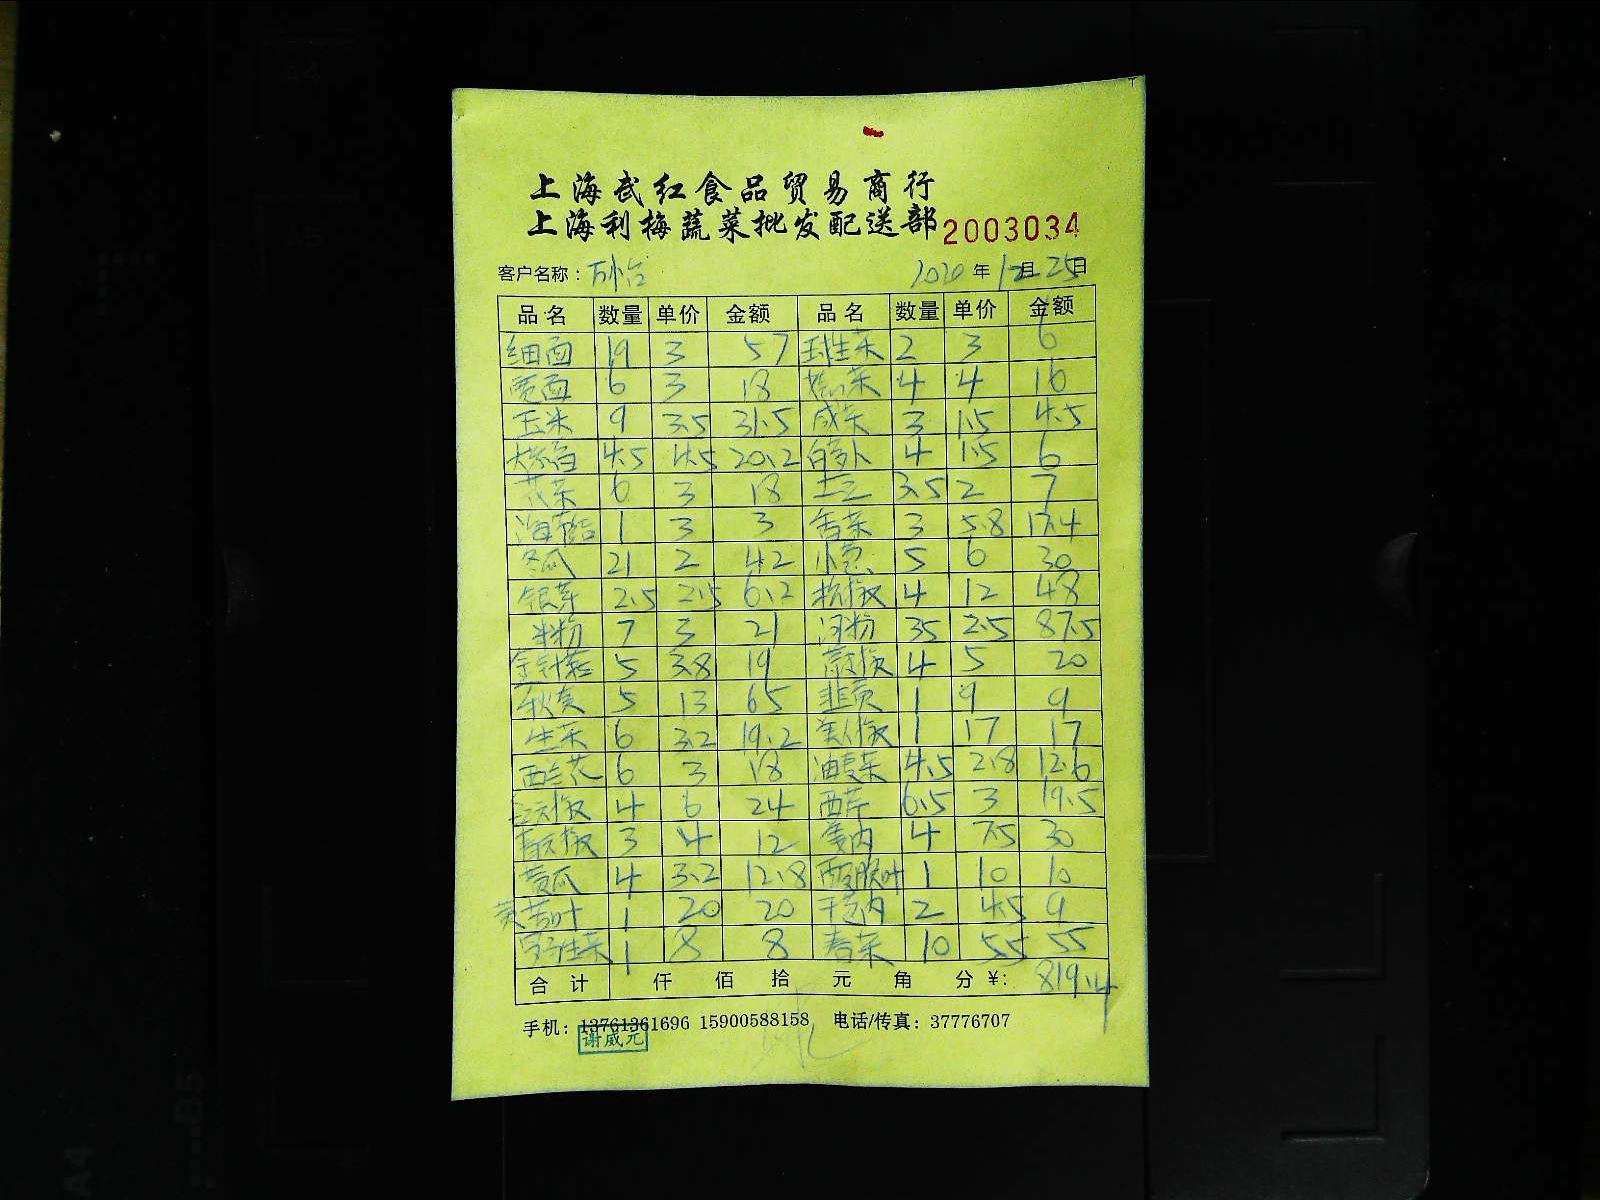 上海武红食品贸易商行
上海利梅蔬菜批发配送部 2003034
客户名称: 2020年12月25日
品名 数量 单价 金额 品名 数量 单价 金额
细面 19 3 57 球生菜 2 3 6
宽面 6 3 18 4 4 16
玉米 9 3.5 31.5 咸菜 3 1.5 4.5
4.5 4.5 20.2 白萝卜 4 1.5 6
花菜 6 3 18 土豆 3.5 2 7
海带结 1 3 3 香菜 3 5.8 17.4
冬瓜 21 2 42 小葱 5 6 30
银芽 2.5 2.5 6.2 杭椒 4 12 48
米粉 7 3 21 河粉 35 2.5 87.5
金针菇 5 3.8 19 4 5 20
秋葵 5 13 65 韭黄 1 9 9
生菜 6 3.2 19.2 美人椒 1 17 17
西兰花 6 3 18 油麦菜 4.5 2.8 12.6
红尖椒 4 6 24 西芹 6.5 3 19.5
青尖椒 3 4 12 姜肉 4 7.5 30
黄瓜 4 3.2 12.8 1 10 10
1 20 20 2 4.5 9
罗马生菜 1 8 8 春菜 10 5.5 55
合计 仟 佰 拾 元 角 分 ¥: 819.4
手机: 13761361696 15900588158 电话/传真: 37776707
谢威元